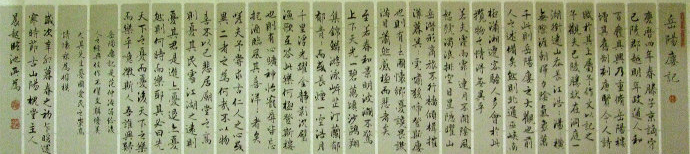 岳陽樓記
慶曆四年春滕子京謫守
巴陵郡越明年政通人和
百廢具興乃重修岳陽樓
增其舊制刻唐賢今人詩
賦於其上屬予作文以記之
予觀夫巴陵勝狀在洞庭一
湖銜遠山吞長江浩浩湯湯
橫無際涯朝暉夕陰氣象萬
千此則岳陽樓之大觀也前
人之述備矣然則北通巫峽南
極瀟湘遷客騷人多會於此
覽物之情得無異乎
若夫霪雨霏霏連月不開陰風
怒號濁浪排空日星隱曜山
岳潛形商旅不行檣傾楫摧
薄暮冥冥虎嘯猿啼登斯樓
也則有去國懷鄉憂讒畏譏
滿目蕭然感極而悲者矣
至若春和景明波瀾不驚
上下天光一碧萬頃沙鷗翔
集錦鱗游泳岸芷汀蘭郁
郁青青而或長煙一空皓月
千里浮光躍金靜影沉璧
漁歌互答此樂何極登斯樓
也則有心曠神怡寵辱皆忘
把酒臨風其喜洋洋者矣
嗟夫予嘗求古仁人之心或
異二者之為何哉不以物
喜不以己悲居廟堂之高則
憂其民處江湖之遠則
憂其君是進亦憂退亦憂
然則何時而樂耶其必曰先
天下之憂而憂後天下之樂
而樂乎噫微斯人吾誰與歸
歲次辛卯暮春之初